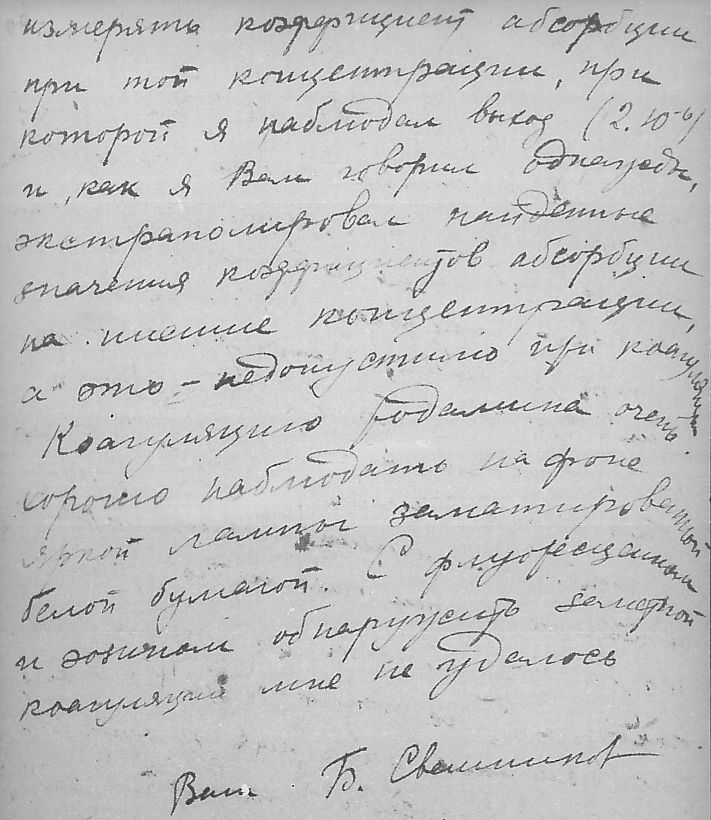 измерять коэффициент абсорбции
при той концентрации, при
которой я наблюдал выход (2.10⁻⁶)
и, как я Вам говорил однажды,
экстраполировал найденные
значения коэффициентов абсорбции
на низшие концентрации,
а это – недопустимо при коагуляции.
Коагуляцию родамина очень
хорошо наблюдать на фоне
яркой лампы заматированной
белой бумагой. С флуоресцеином
и эозином обнаружить заметной
коагуляции мне не удалось
Ваш Б. Свешников